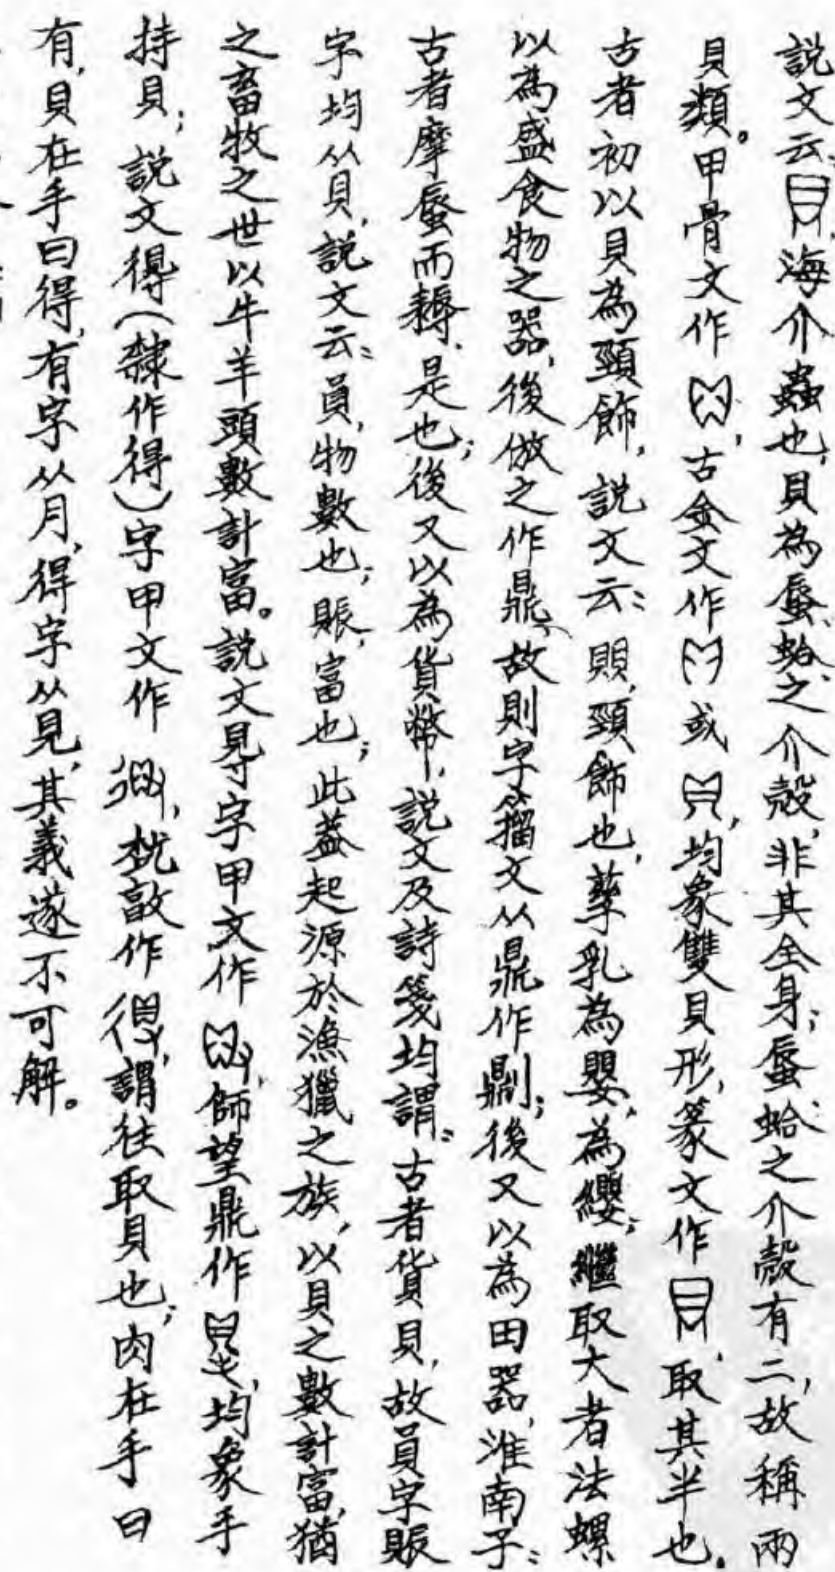 說文云:貝,海介蟲也,貝為蜃蛤之介殼,非其全身;蜃蛤之介殼有二,故稱兩
貝類。甲骨文作,古金文作或,均象雙貝形,篆文作,取其半也。
古者初以貝為頸飾,說文云:賏,頸飾也,孳乳為嬰,為纓;繼取大者法螺
以為盛食物之器,後倣之作鼎,故則字籀文从鼎作鼎刂;後又以為田器,淮南子:
古者摩蜃而耨,是也;後又以為貨幣,說文及詩箋均謂:古者貨貝,故員字賑
字均从貝,說文云:員,物數也;賑,富也;此蓋起源於漁獵之族,以貝之數計富,猶
之畜牧之世以牛羊頭數計富。說文㝵字甲文作,師望鼎作,均象手
持貝;說文得(隸作得)字甲文作,敔作,謂往取貝也;肉在手曰
有,貝在手曰得,有字从月,得字从見,其義遂不可解。